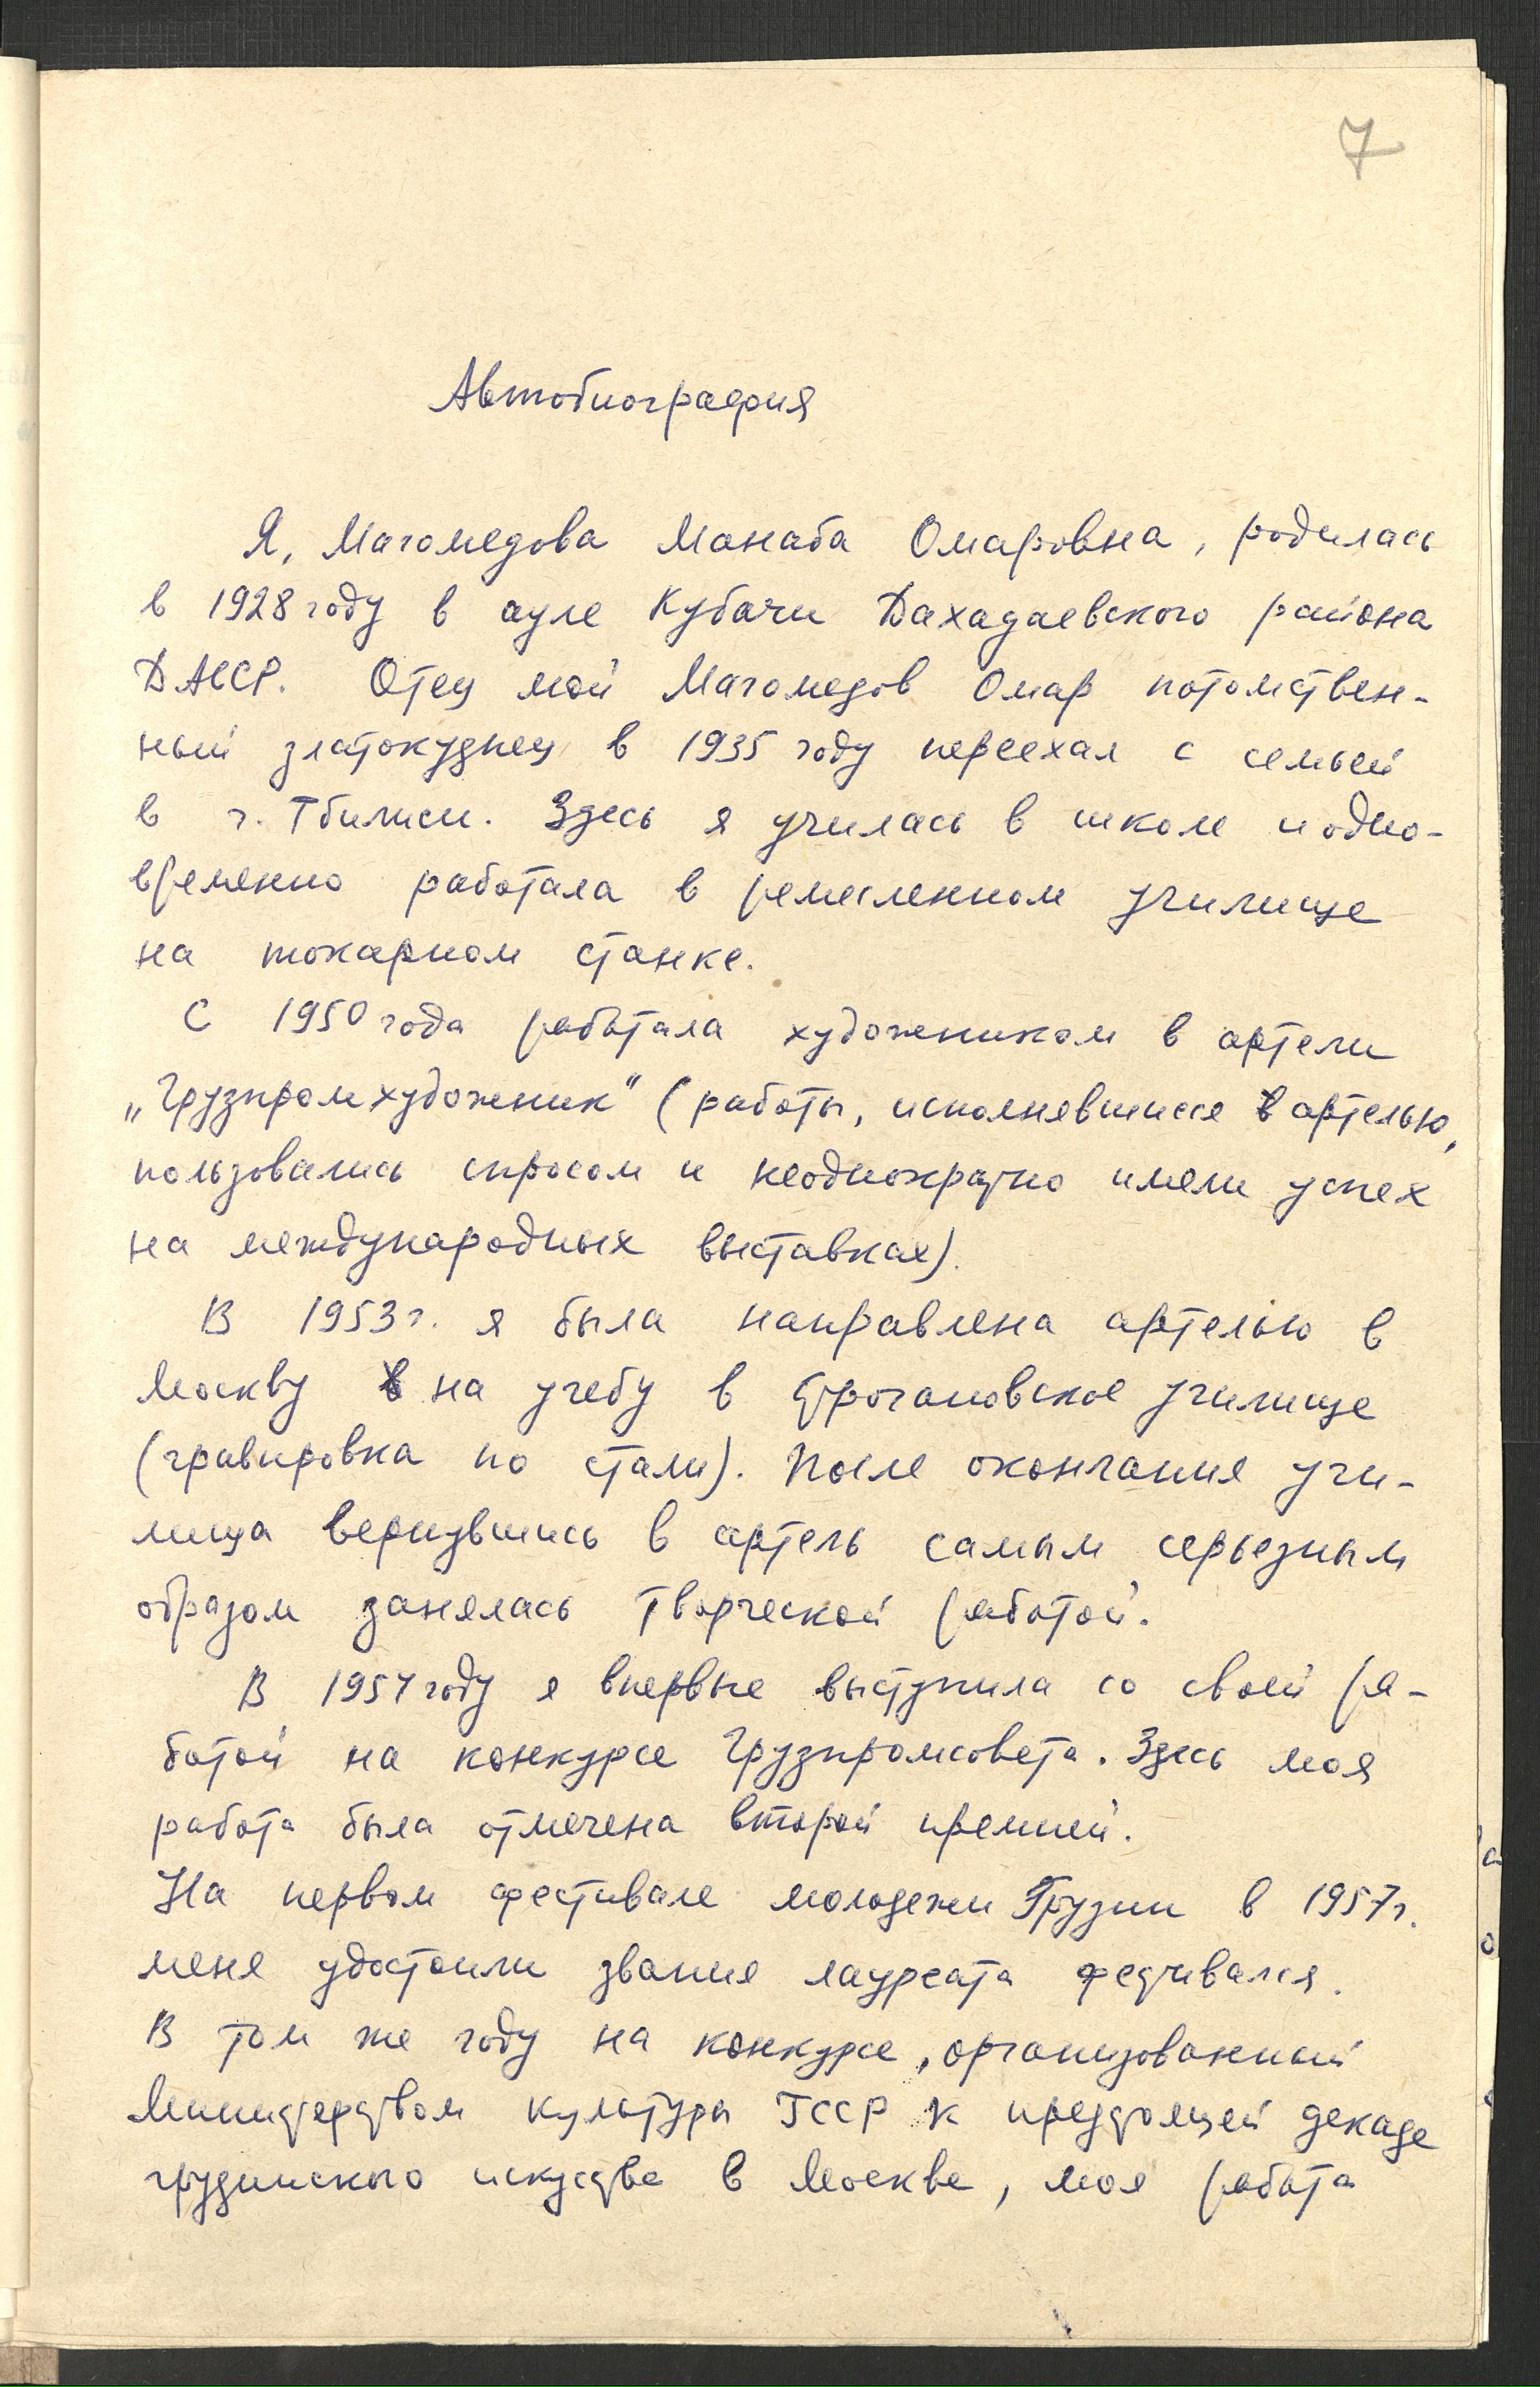 7
Автобиография
Я, Магомедова Манаба Омаровна, родилась
в 1928 году в ауле Кубачи Дахадаевского района
ДАССР. Отец мой Магомедов Омар потомствен-
ный златокузнец в 1935 году переехал с семьей
в г. Тбилиси. Здесь я училась в школе и одно-
временно работала в ремесленном училище
на токарном станке.
С 1950 года работала художником в артели
„Грузпромхудожник" (работы, исполнявшиеся артелью,
пользовались спросом и неоднократно имели успех
на международных выставках).
В 1953 г. я была направлена артелью в
Москву на учебу в Строгановское училище
(гравировка по стали). После окончания учи-
лища вернувшись в артель самым серьезным
образом занялась творческой работой.
В 1957 году я впервые выступила со своей ра-
ботой на конкурсе Грузпромсовета. Здесь моя
работа была отмечена второй премией.
На первом фестивале молодежи Грузии в 1957 г.
меня удостоили звания лауреата фестиваля.
В том же году на конкурсе, организованный
Министерством культуры ГССР к предстоящей декаде
грузинского искусства в Москве, моя работа